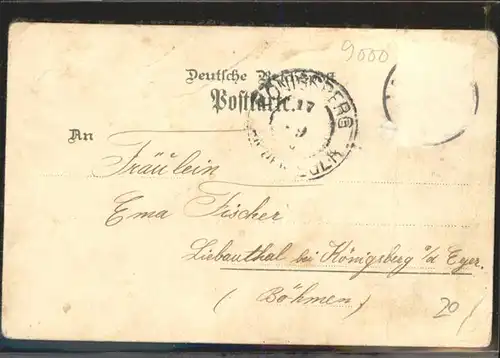 9000
Deutsche Reichspost
Postkarte.
KÖNIGSBERG
17
9
An
Fräulein
Ema Fischer
Liebauthal bei Königsberg a/d Eger.
(Böhmen)
20/